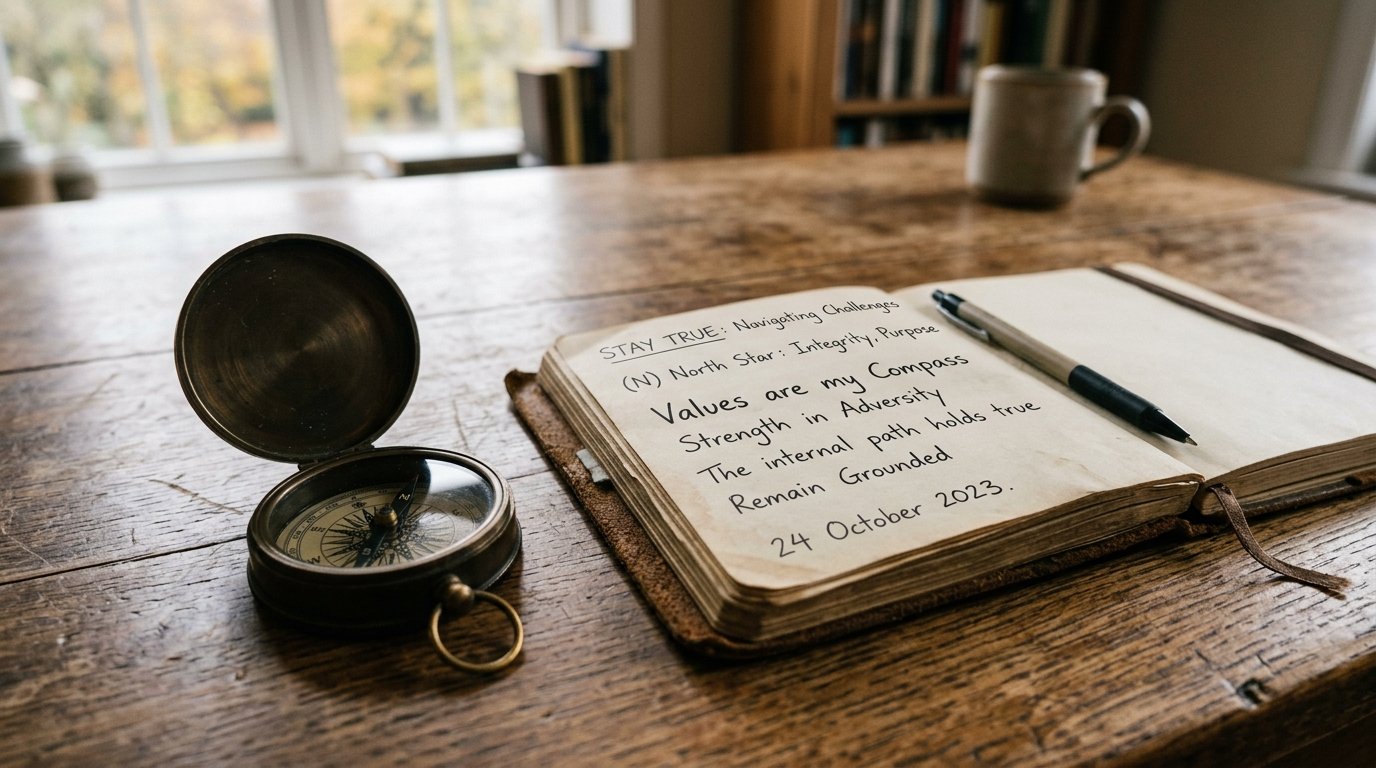 STAY TRUE: Navigating Challenges
(N) North Star: Integrity, Purpose
Values are my Compass
Strength in Adversity
The internal path holds true
Remain Grounded
24 October 2023.
N